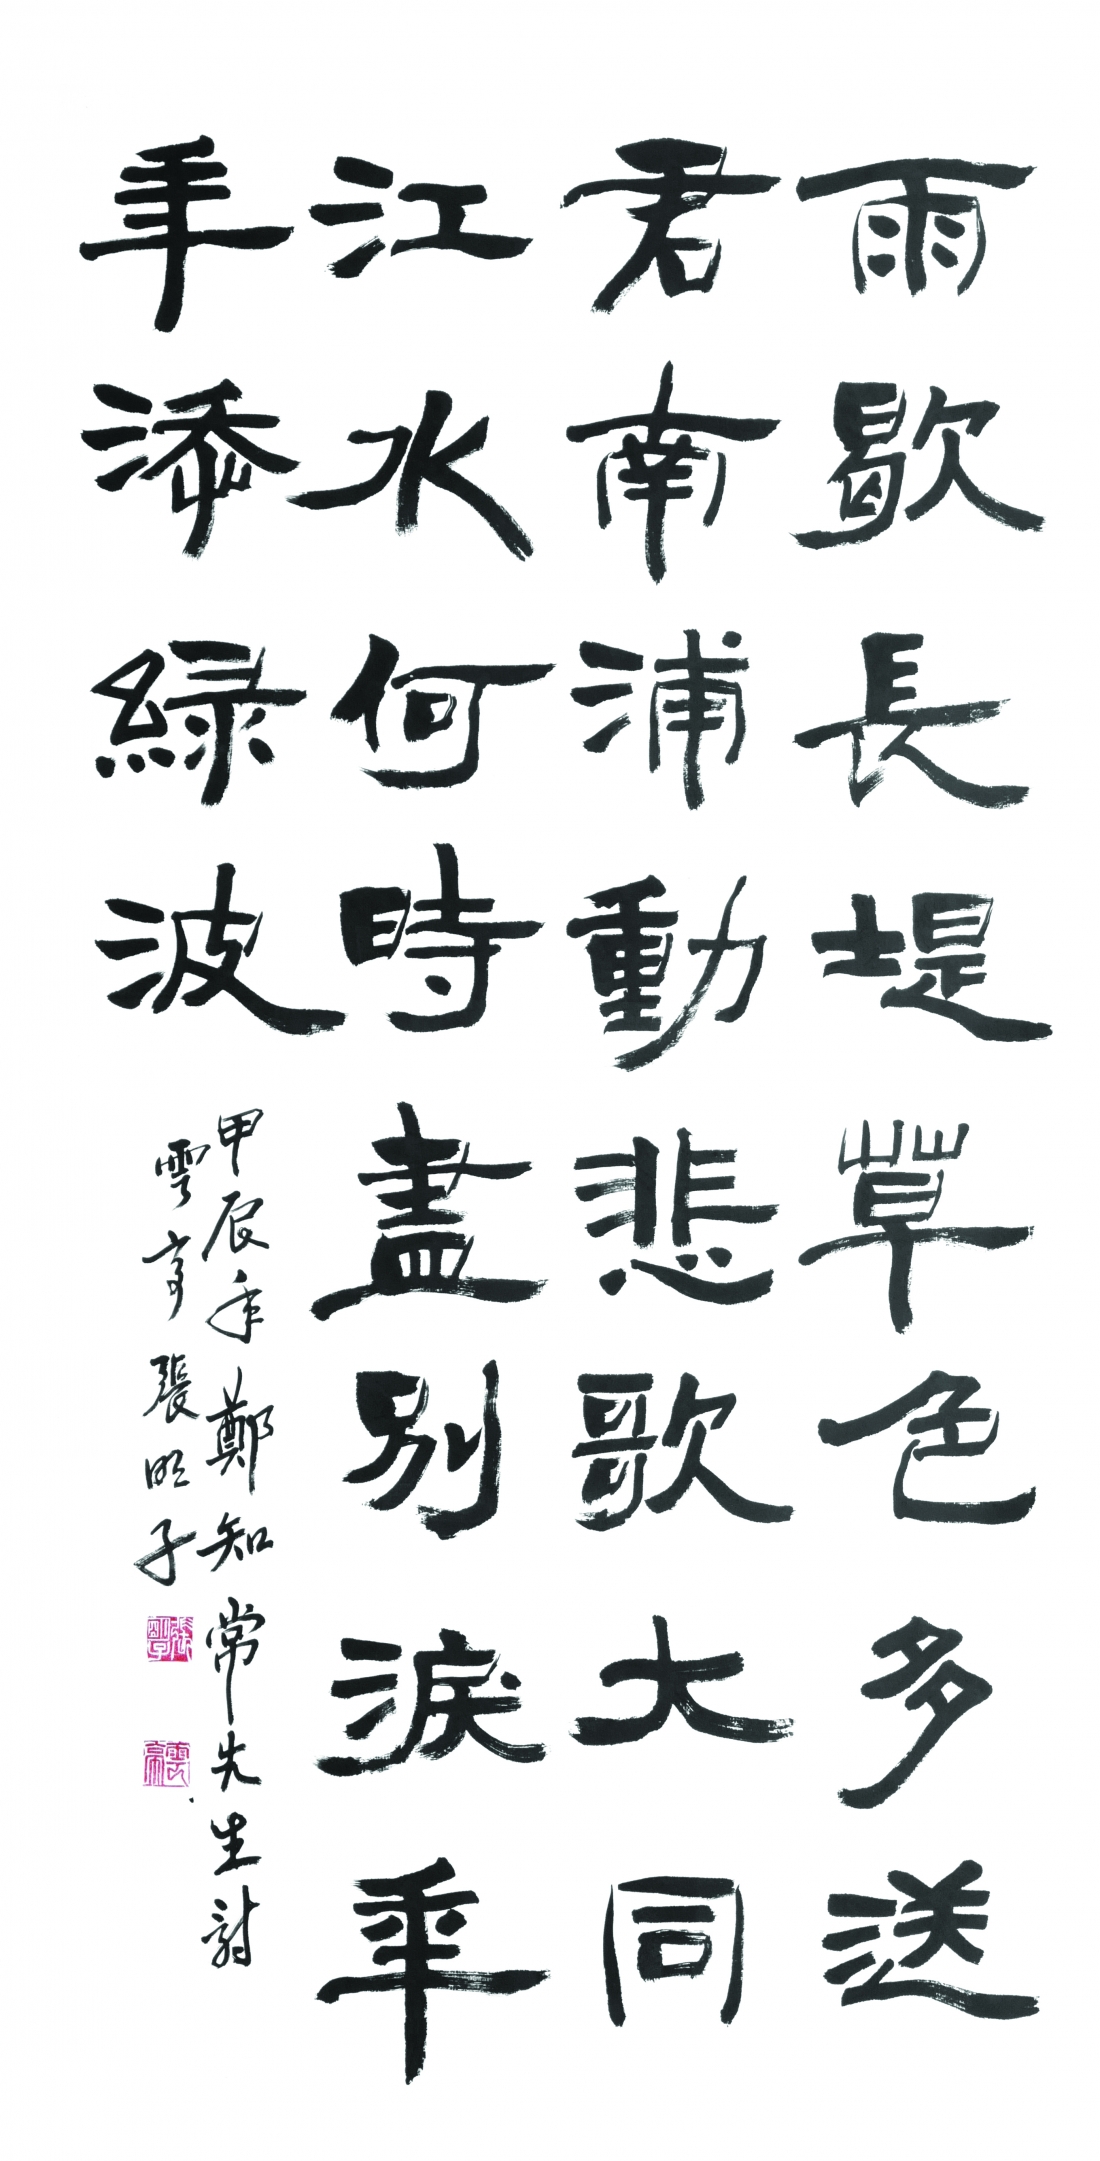 雨歇長堤草色多送
君南浦動悲歌大同
江水何時盡別淚年
年添綠波
甲辰年鄭知常先生詩
雲亭張明子